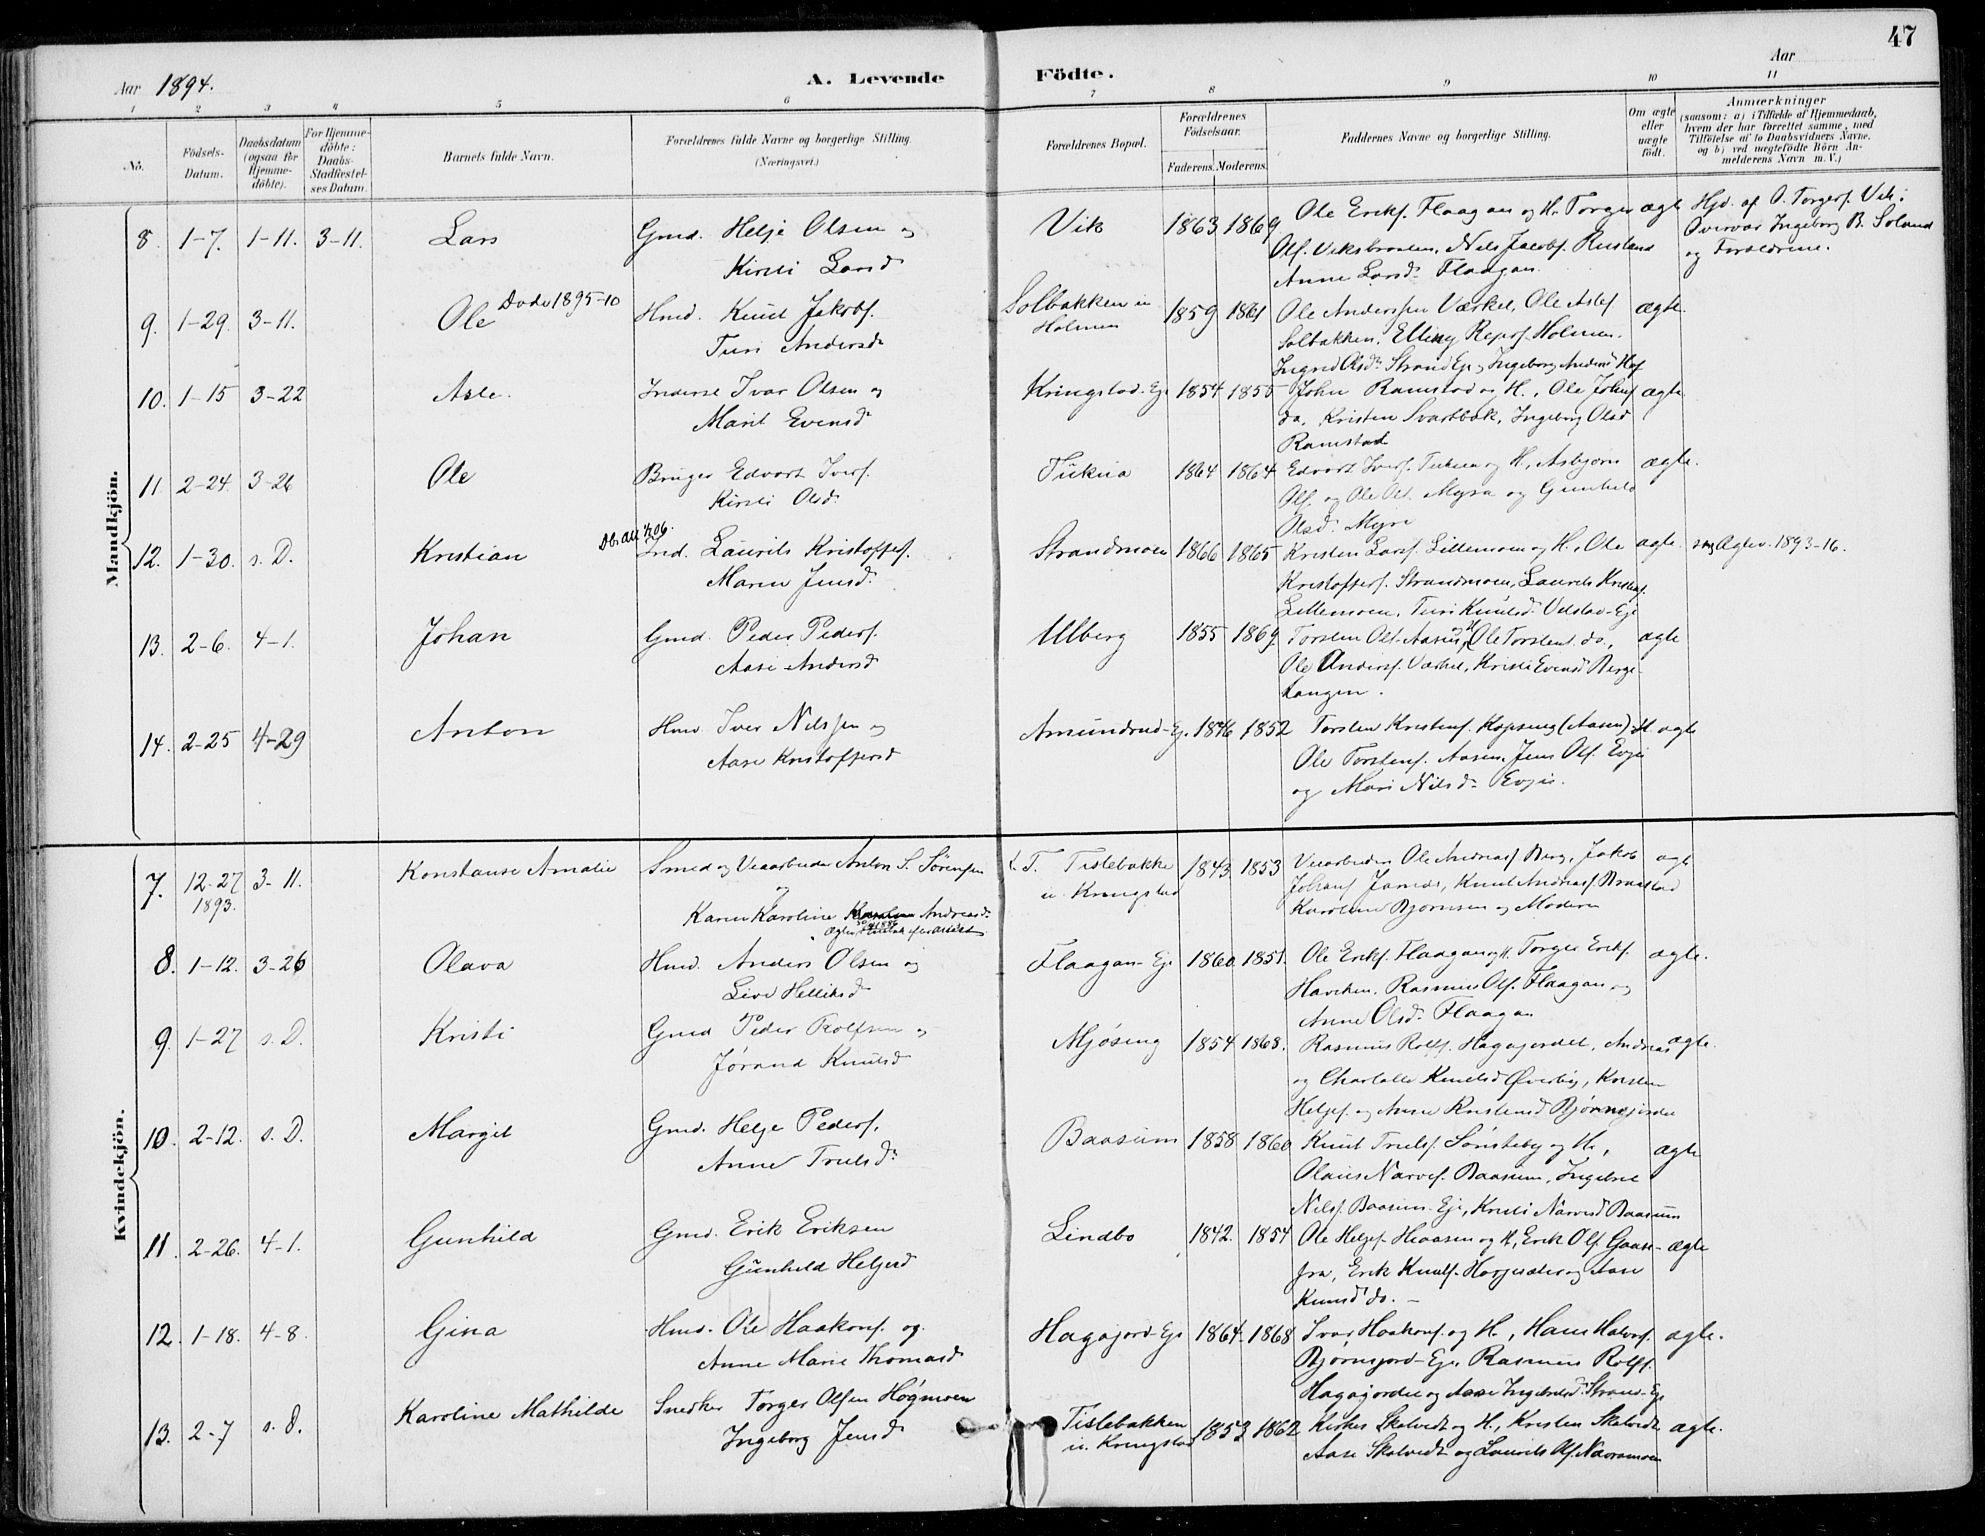 47
Aar 1894.
A. Levende Födte.
Aar
1 2 3 4 5 6 7 8 9 10 11
No.
Födsels-Datum.
Daabsdatum (ogsaa for Hjemme-döbte).
For Hjemme-döbte: Daabs-Stadfæstel-ses Datum.
Barnets fulde Navn.
Forældrenes fulde Navne og borgerlige Stilling. (Næringsvei.)
Forældrenes Bopæl.
Forældrenes Födselsaar.
Faderens. Moderens.
Faddernes Navne og borgerlige Stilling.
Om ægte eller uægte födt.
Anmærkninger
(saasom: a) i Tilfælde af Hjemmedaab, hvem der har forrettet samme, med Tilföielse af to Daabsvidners Navne. og b) ved uegtefödte Börn An-melderens Navn m. V.)
Mandkjön.
8. 1-7. 1-11. 3-11. Lars
Gmd. Helje Olsen og
Kirsti Larsd
Vik 1863 1869
Ole Eriks. Flaagan og H. Torger
Ols. Viksbraaten, Nils Jacobs. Rusland
Anne Larsd. Flaagan
ægte
Hjd. af O. Torgers. Vik:
Overvar Ingeborg B. Soland
og Forældrene.
9. 1-29. 3-11. Ole Døde 1895-10
Hmd. Knud Jakobs.
Turi Andersd
Solbakken u
Holmen
1859 1861
Ole Anderssen Værkel, Ole Asles
Solbakken, Elling Reprs. Holmen
Ingrid Olsd. Strand Eje, Ingeborg Andersd Hof
ægte.
10. 1-15 3-22 Asle.
Inderst Ivar Olsen og
Marit Evensd
Kringstad-Eje 1854 1855
John Ramstad og H., Ole Johns
do, Kristen Svartbæk, Ingeborg Olsd
Ramstad
ægte
11. 2-24. 3-26 Ole
Bruger Edvart Ivers.
Kirsti Olsd
Tukua 1864 1864
Edvart Ivers. Tukua og H, Asbjørn
Ols. og Ole Ols. Myra og Gunhild
Olsd. Myre
ægte.
12. 1-30. s. D. Kristian
Ind. Laurits Kristoffers.
Maren Jensd.
Strandmoen 1866 1865
Kristen Lars. Lillemoen og H., Ole
Kristoffers. Strandmoen, Laurits Kristens.
Lillemoen, Turi Knudsd
ægte.
Ægtev. 1893-16.
13. 2-6. 4-1. Johan
Gmd. Peder Peders.
Aase Andersd
Ulberg 1855 1869
Torsten Ols. Aasen, og H Ole Torstens. do,
Ole Anders. Værkel, Kristi Evensd Berge-
tangen.
ægte
14. 2-25 4-29 Anton
Hmd Iver Nilssen og
Aase Kristoffersd
Amundrud-Ej. 1846 1852
Torsten Kristens. Kopseng (Aasen) H
Ole Torstens. Aasen, Jens Ols. Evje
og Mari Nilsd. Evje.
ægte
Kvindekjön.
7. 12-27 1893. 3-11. Konstanse Amalie
Smed og Veiarbeider Anton S. Sørensen
og
Karen Karoline Andreasd.
Tislebakke
u. Kringstad
1843 1853
Veiarbeider Ole Andreas. Berg, Jakob
Johans Jamar, Knud Andreas. Braastad
Karoline Bjørnsen og Moderen
ægte
8. 1-12. 3-26 Olava
Hmd. Anders Olsen og
Live Helliksd
Flaagan-Eje 1860 1851.
Ole Eriks. Flaagan og H. Torger Eriks.
Rasmus Ols. Flaagan og
Anne Olsd. Flaagan
ægte.
9. 1-27 s. D. Kristi
Gmd Peder Rolfsen og
Jørand Knudsd
Mjøseng 1854 1868.
Rasmus Rolfs. Hagajordet, Andreas
og Charlotte Knudsd Øverby, Kristen
Heljes. og Anne Kristensd
ægte.
10. 2-12. s. D. Margit
Gmd. Helje Peders.
Anne Trulsd.
Baasum 1858 1860
Knud Truls. Sønsteby og H.,
Olaus Narves. Baasum, Ingebret
Nils. Baasum-Eje, Kristi Narvesd Baasum
ægte
11. 2-26. 4-1. Gunhild
Gmd. Erik Eriksen
Gunhild Heljesd
Lindbo 1842. 1854
Ole Heljes. Hvaasen og H, Erik Ols. Gaase-
fra, Erik Knuds. og Aase
Knudsd do. —
ægte
12. 1-18. 4-8. Gina
Hmd. Ole Haakons. og
Anne Marie Thomasd
Hagajord-Eje 1864. 1868
Ivar Haakons. og H., Hans Halvors.
Bjørnejord-Eje, Rasmus Rolfs.
Hagajordet og Aase Strand-Eje
ægte.
13. 2-7 s. D. Karoline Mathilde
Snedker Torger Olsen Høgmoen
Ingeborg Jensd
Tislebakken
u. Kringstad
1853 1862
Skatvedt og H., Kristen Skatvedt
Aase Skatvedt og Laurits Ols.
ægte.